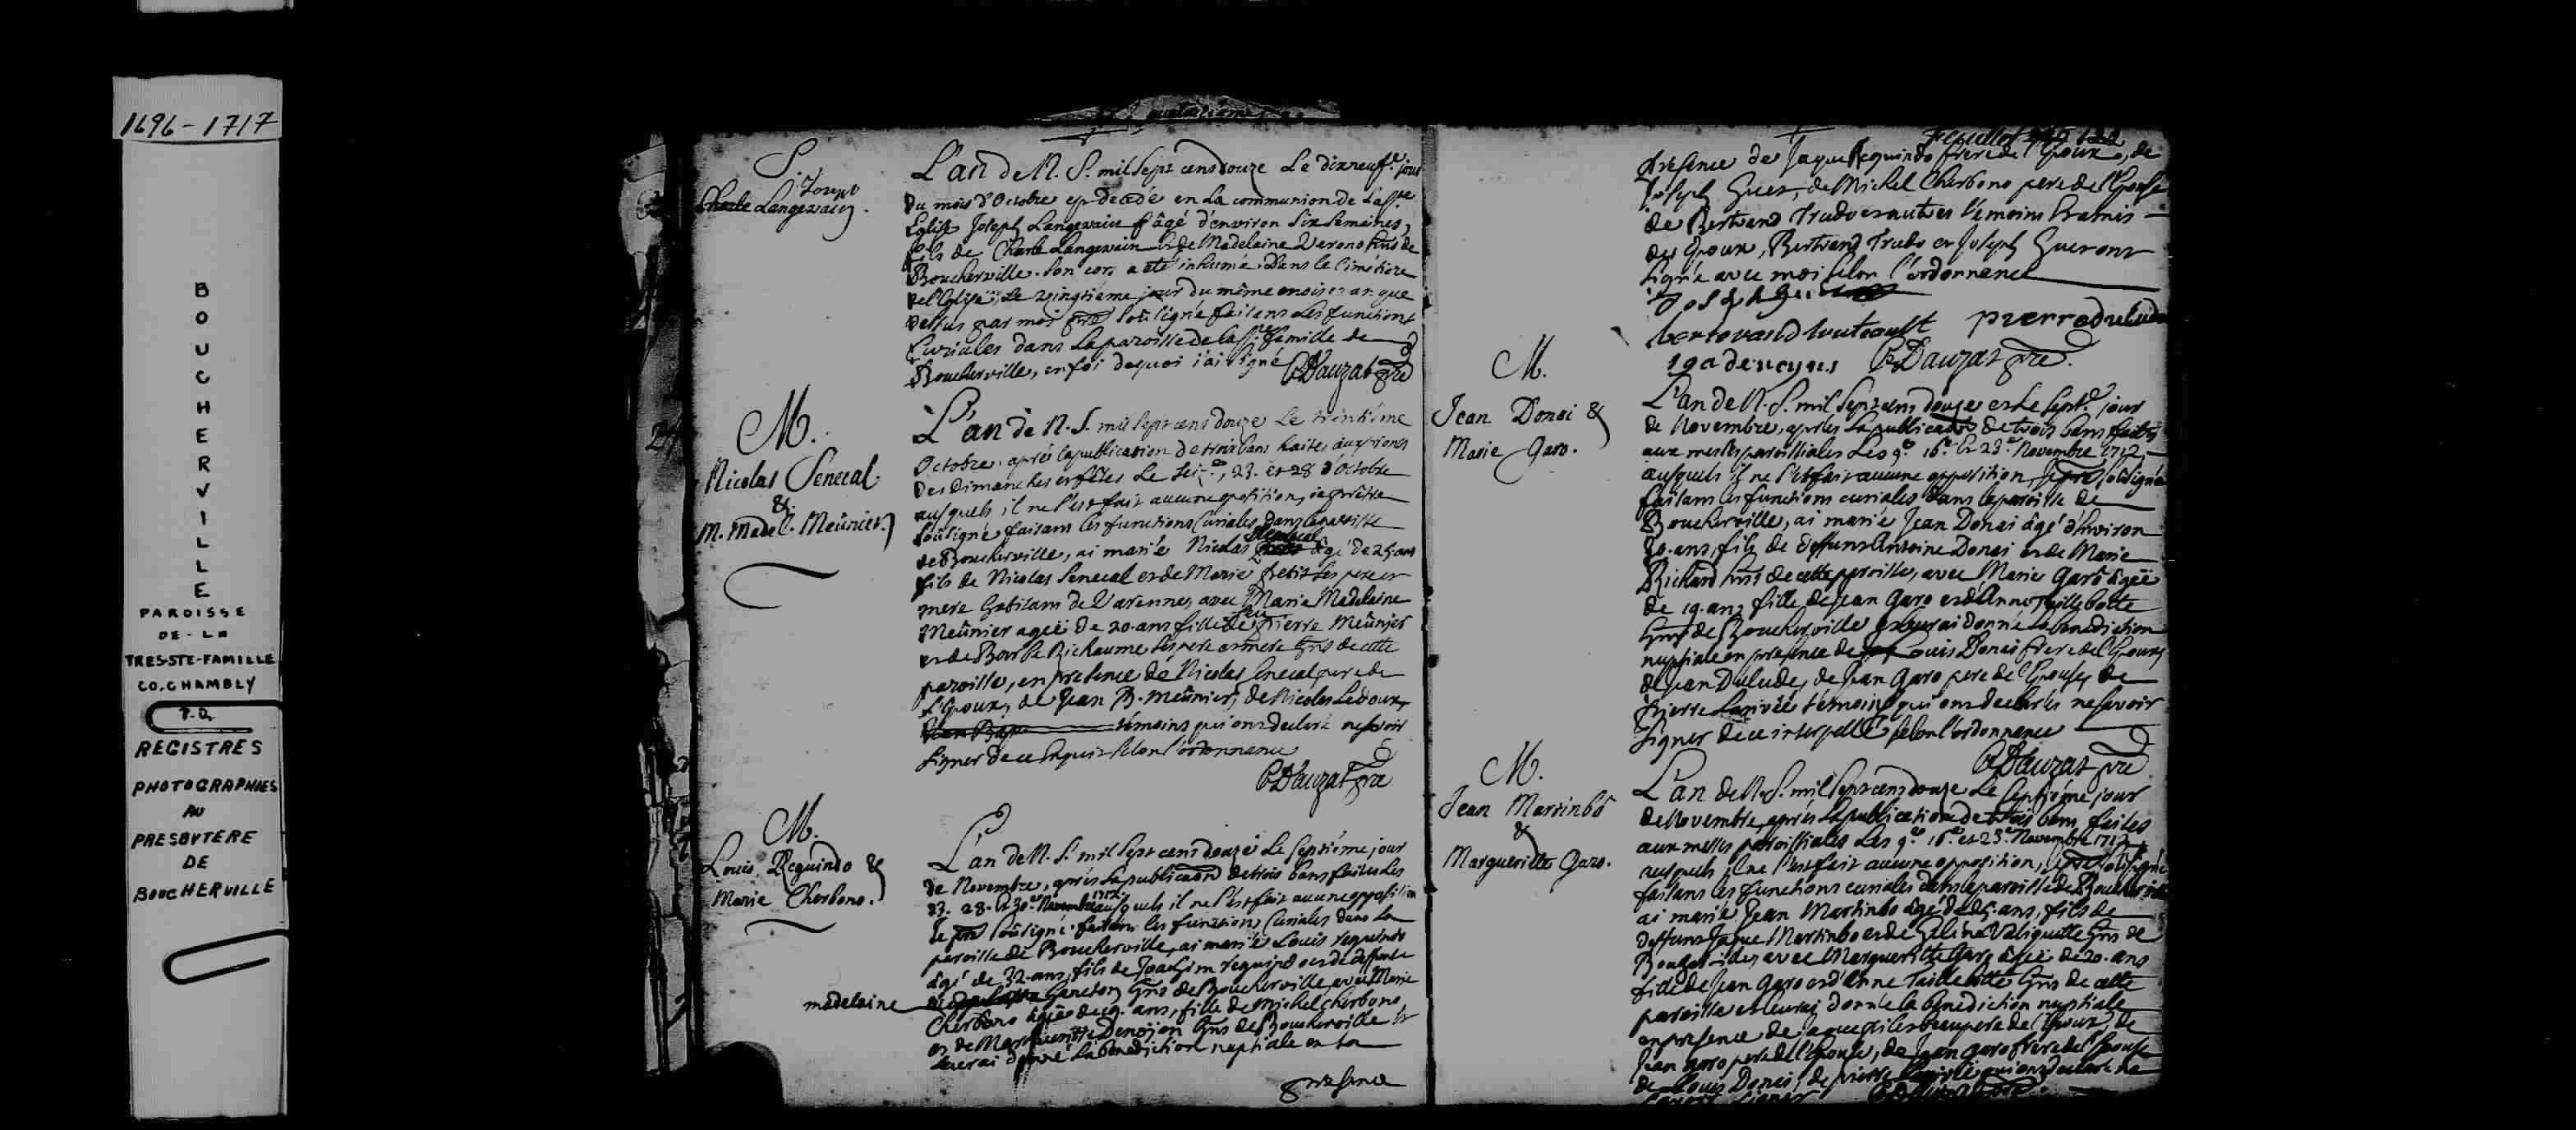 1696-1717
BOUCHERVILLE
PAROISSE
DE-LA
TRES-STE-FAMILLE
CO.CHAMBLY
P.Q.
REGISTRES
PHOTOGRAPHIÉS
AU
PRESBYTERE
DE
BOUCHERVILLE
S.
Joseph
Charle Langevain.
L'an de N. S. mil sept cens douze Le dixneufe. jour
du mois d'Octobre est decedé en La communion de La
Eglise Joseph Langevain âgé d'environ six semaines,
fils de Charle Langevain et de Madelaine Verono de
Boucherville. Son cors a eté inhumé dans le Cimétiere
de l'Eglise, Le vingtieme jour du même mois et an que
dessus par moi pre soûsigné faisans Les functions
Curiales dans La paroisse de La Ste famille de
Boucherville, en foi dequoi j'ai signé
P.Dauzat pre
M.
Nicolas Senecal
&
M. Madel. Meûnier.
L'an de N. S. mil sept cens douze Le trentiéme
Octobre. aprés la publication de trois bans faites aux prones
des Dimanches et fêtes Le sei.e, 23. et 28 d'Octobre
ausquels il ne s'est fait aucune opposition, je prêtre
soûsigné faisam les functions Curiales dans la paroisse
de Boucherville, ai marié Nicolas Senecal âgé de 25 ans
fils de Nicolas Senecal et de Marie petit ses pere et
mere habitans de Varennes, avec Marie Madelaine
Meûnier ageë de 20 ans fille de feu pierre Meûnier
et de Barbe Richaume ses pere et mere de cette
paroisse, en presence de Nicolas Senecal pere de
L'Epoux, de Jean B. Meûnier, de Nicolas Ledoux,
témoins qui ons declaré ne savoir
signer de ce enquis selon l'ordonnance
P.Dauzat pre
M.
Louis Requindo &
Marie Cherbono.
L'an de N. S. mil sept cens douze Le septiéme jour
de Novembre, aprés la publication de trois bans faites les
23. 28. et 30.e Novembre 1712 ausquels il ne s'est fait aucune opposition
Je pre soûsigné faisans les functions Curiales dans La
paroisse de Boucherville, ai marié Louis requindo
âgé de 32 ans, fils de Joachim requindo et de deffunte
madelaine
de Boucherville, avec Marie
Cherbono âgeë de 19. ans, fille de Michel Cherbono,
et de Marguerite Denoyon de Boucherville et
leur ai donné La benediction nuptiale en La
presence
feuillet
presence de Jaque Requindo frere de l'Epoux, de
Joseph Guer, de Michel Cherbono pere de l'Epouse
de Bertrand Trudo et autres témoins et amis
des Epoux, Bertrand Trudo et Joseph Guer ont
signé avec moi selon l'ordonnance
P.Dauzat pre.
M.
Jean Donai &
Marie Garo.
L'an de N. S. mil sept cens douze et Le sept.e jour
de Novembre, aprés La publication de trois bans faites
aux messes paroissiales Les 9.e 16.e et 23.e Novembre 1712
ausquels il ne s'est fait aucune opposition, Je pre soûsigné
faisans les functions curiales dans la paroisse de
Boucherville, ai marié Jean Donai âgé d'environ
30. ans, fils de deffunt Antoine Donai et de Marie
Richard de cette paroisse, avec Marie Garô âgeë
de 19. ans fille de Jean Garo et d'Anne Taillebotte
de Boucherville et leur ai donné La benediction
nuptiale en presence de Louis Donai frere de l'Epoux
de Jean Dulude, de Jean Garo pere de l'Epouse, de
pierre Larivée témoins qui ons declarés ne savoir
signer de ce interpellé selon l'ordonnance
P.Dauzat pre
M.
Jean Martinbô
&
Margueritte Garo.
L'an de N. S. mil sept cens douze Le septiéme jour
de Novembre, aprés La publication de trois bans faites
aux messes paroissiales Les 9.e 16.e et 23.e Novembre 1712
ausquels il ne s'est fait aucune opposition, Je pre soûsigné
faisans les functions curiales dans la paroisse de Boucherville
ai marié Jean Martinbo âgé de 25. ans, fils de
deffunt Jaque Martinbo et de Valiquette de
avec Marguerite Garo âgeë de 20. ans
fille de Jean Garo et d'Anne Taillebotte de cette
paroisse et leur ai donné la benediction nuptiale
en presence de beaupere de l'Epoux, de
Jean Garo pere de l'Epouse, de Jean Garo frere de l'Epouse
de Louis Donai, de pierre Larivée qui ons declaré ne
savoir signer